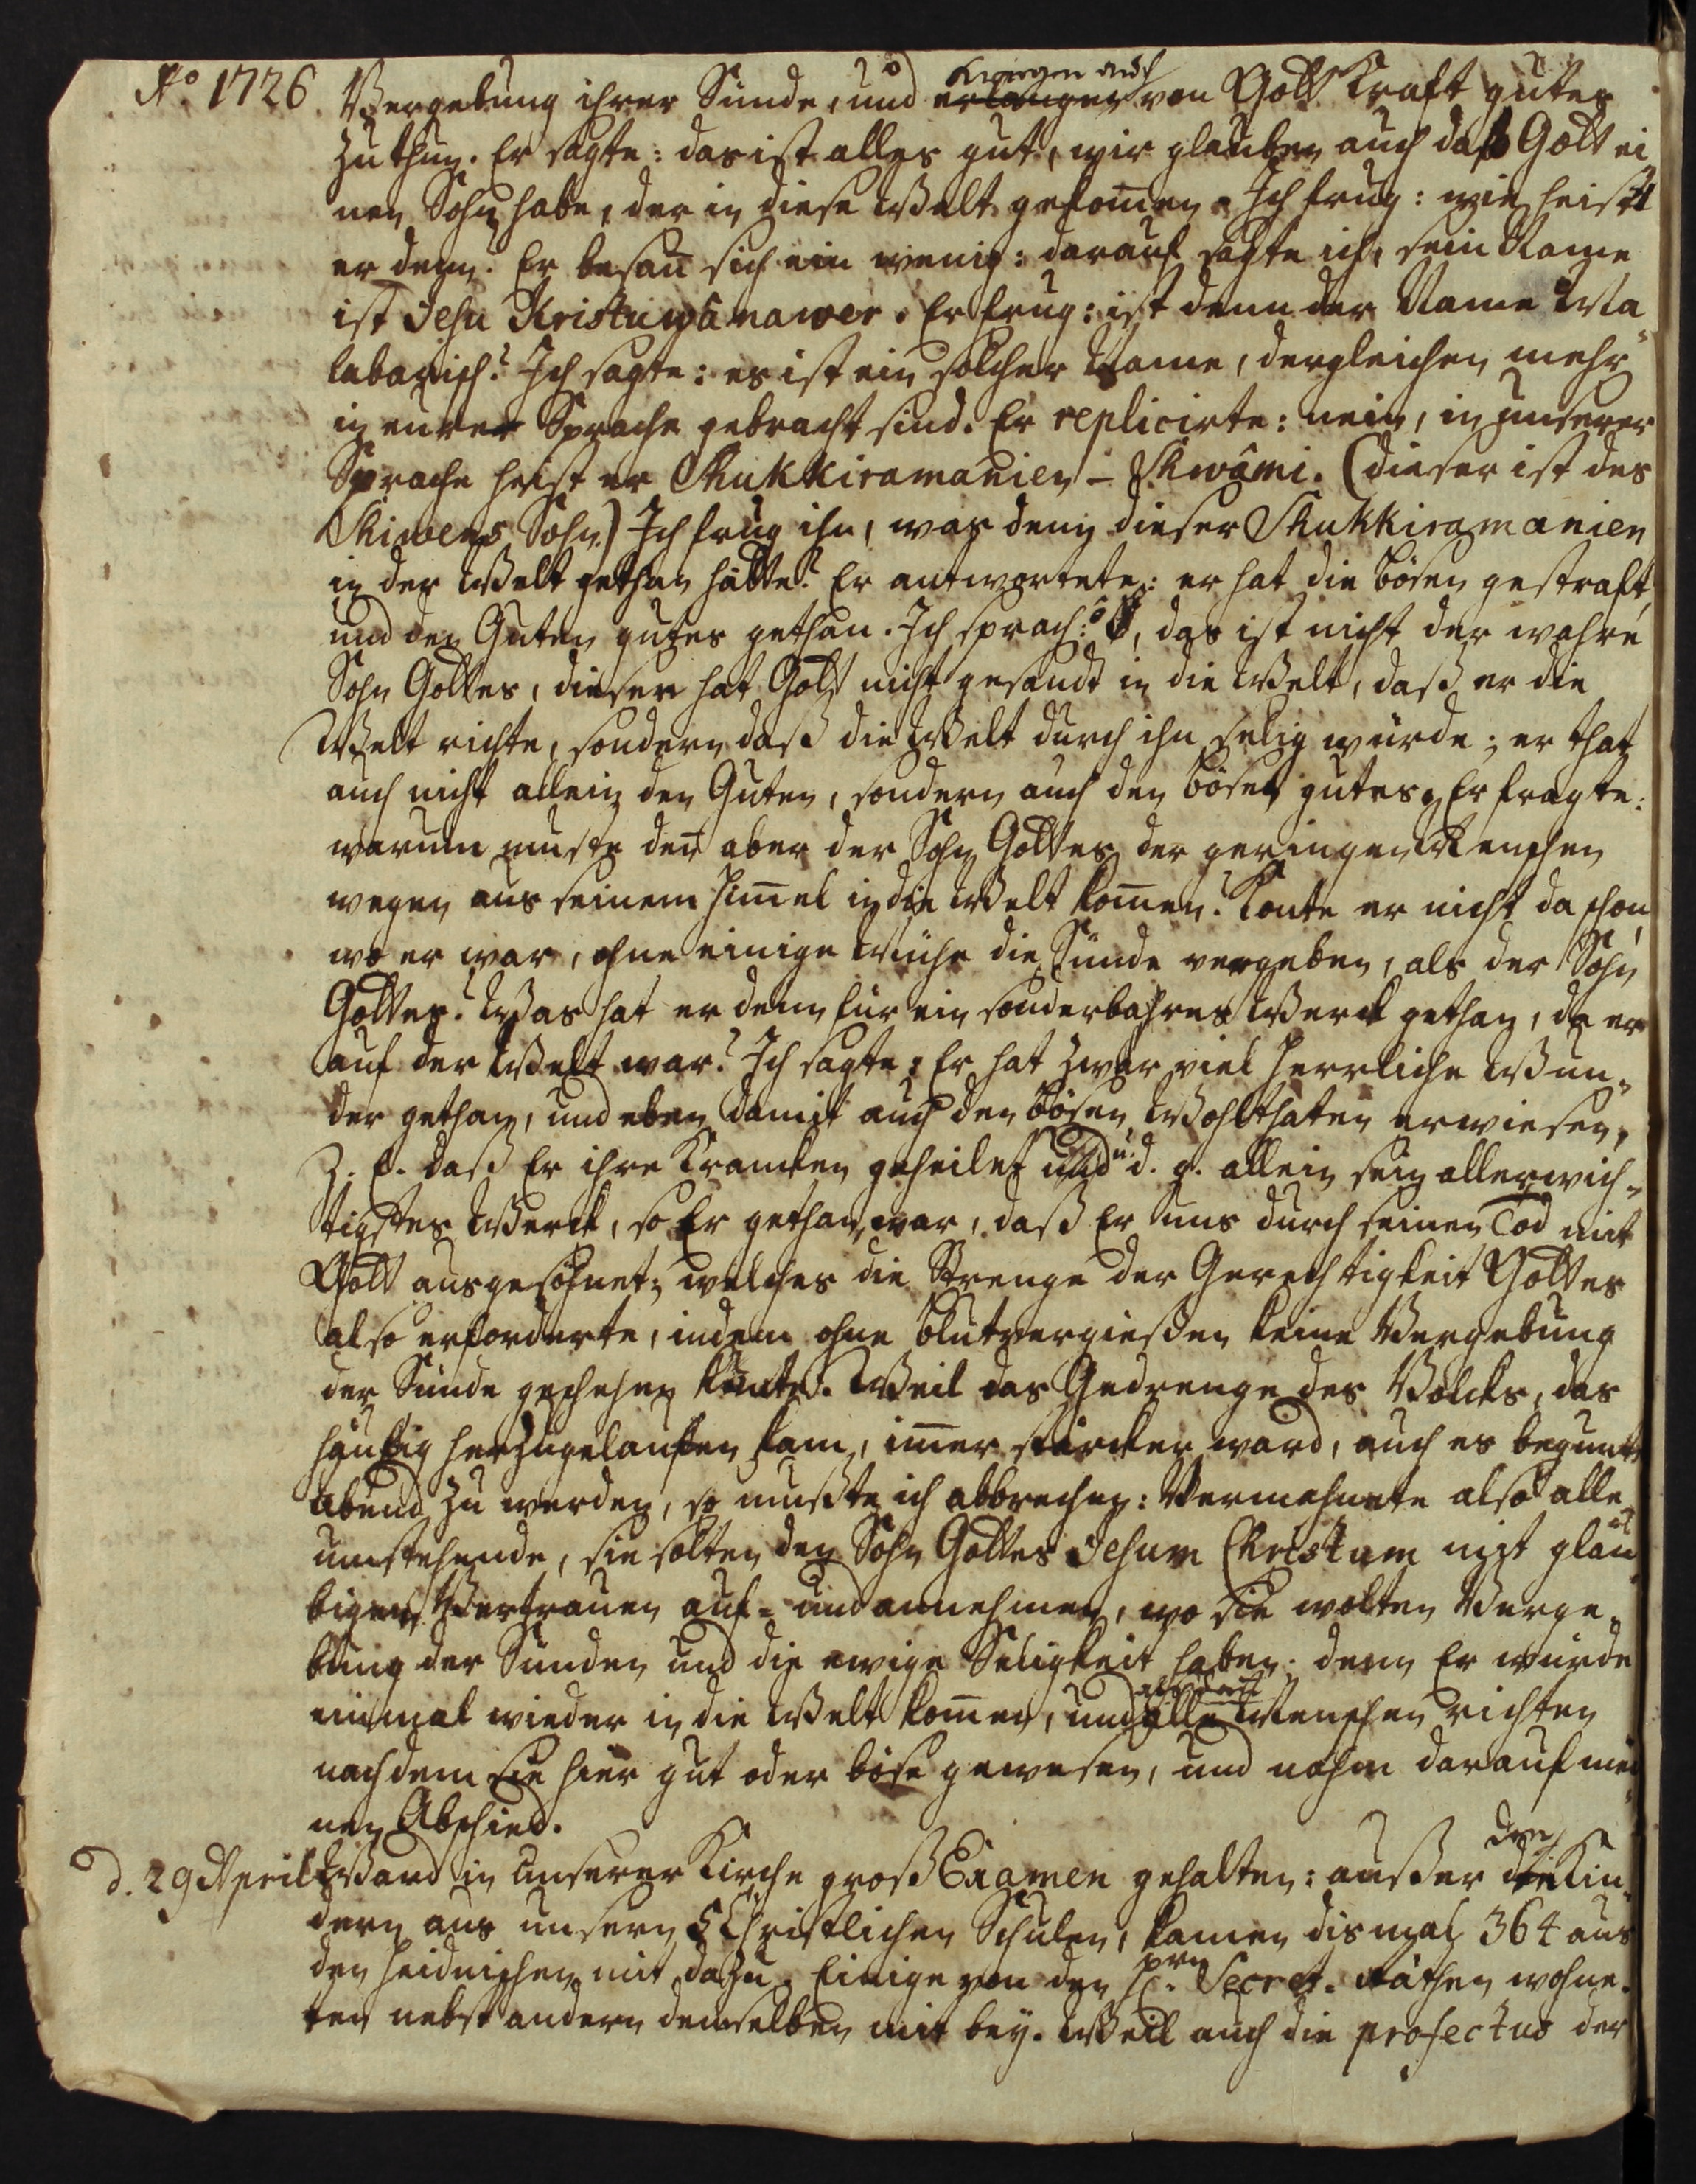 Aº 1726. Vergebung ihrer Sünde, und kriegen auch von Gott Kraft gutes
zu thun. Er sagte: das ist alles gut, wir glauben auch daß Gott ei
nen Sohn habe, der in diese Welt gekom̄en. Ich frug: wie heist
er denn? Er besan̄ sich ein wenig: darauf sagte ich, sein Name
ist Jesu Kristuwānawer. Er frug: ist denn der Name Ma
labarisch? Ich sagte: es ist ein solcher Name, dergleichen mehr
in eurer Sprache gebracht sind. Er replicirte: nein, in unserer
Sprache heist er Shukkiramanien-Shwâmi. (dieser ist des
Shiwens Sohn.) Ich frug ihn, was denn dieser Shukkiramanien
in der Welt gethan hätte? Er antwortete: er hat die bösen gestraft,
und den Guten gutes gethan. Ich sprach: o, das ist nicht der wahre
Sohn Gottes, diesen hat Gott nicht gesandt in die Welt, daß er die
Welt richte, sondern daß die Welt durch ihn selig würde; er that
auch nicht allein den Guten, sondern auch den bösen gutes. Er fragte:
warum muste den̄ aber der Sohn Gottes der geringen Menschen
wegen aus seinem Him̄el in die Welt kom̄en? Konte er nicht da schon
wo er war, ohne einige Mühe die Sünde vergeben, als der Sohn
Gottes? Was hat er denn für ein sonderbahres Werck gethan, da er
auf der Welt war? Ich sagte: Er hat zwar viel herrliche Wun-
der gethan, und eben damit auch den bösen Wohlthaten erwiesen,
Z. E. daß Er ihre Krancken geheilet u. d. g. allein sein allerwich-
tigstes Werck, so Er gethan, war, daß Er uns durch seinen Tod mit
Gott ausgesöhnet; welches die Strenge der Gerechtigkeit Gottes
also erforderte, indem ohne Blutvergießen keine Vergebung
der Sünde geschehen konte. Weil das Gedrenge des Volcks, das
häuffig herzugelauffen kam, im̄er stärcker ward, auch es begunte
abend zu werden, so mußte ich abbrechen: Vermahnete also alle
umstehende, sie solten den Sohn Gottes Jesum Christum mit gläu
bigen Vertrauen auf- und annehmen, wo sie wolten Verge-
bung der Sünden und die ewige Seligkeit haben: denn Er würde
einmal wieder in die Welt kom̄en, und alle Menschen richten
nachdem sie hier gut oder böse gewesen, und nahm darauf mei
nen Abschied.
d. 29 April Ward in unserer Kirche groß Examen gehalten: außer den Kin-
dern aus unsern 5 Christlichen Schulen, kamen dismal 364 aus
den heidnischen mit dazu. Einige von den Hrn. Secret. Räthen wohne-
ten nebst andern demselben mit bey. Weil auch die profectus der